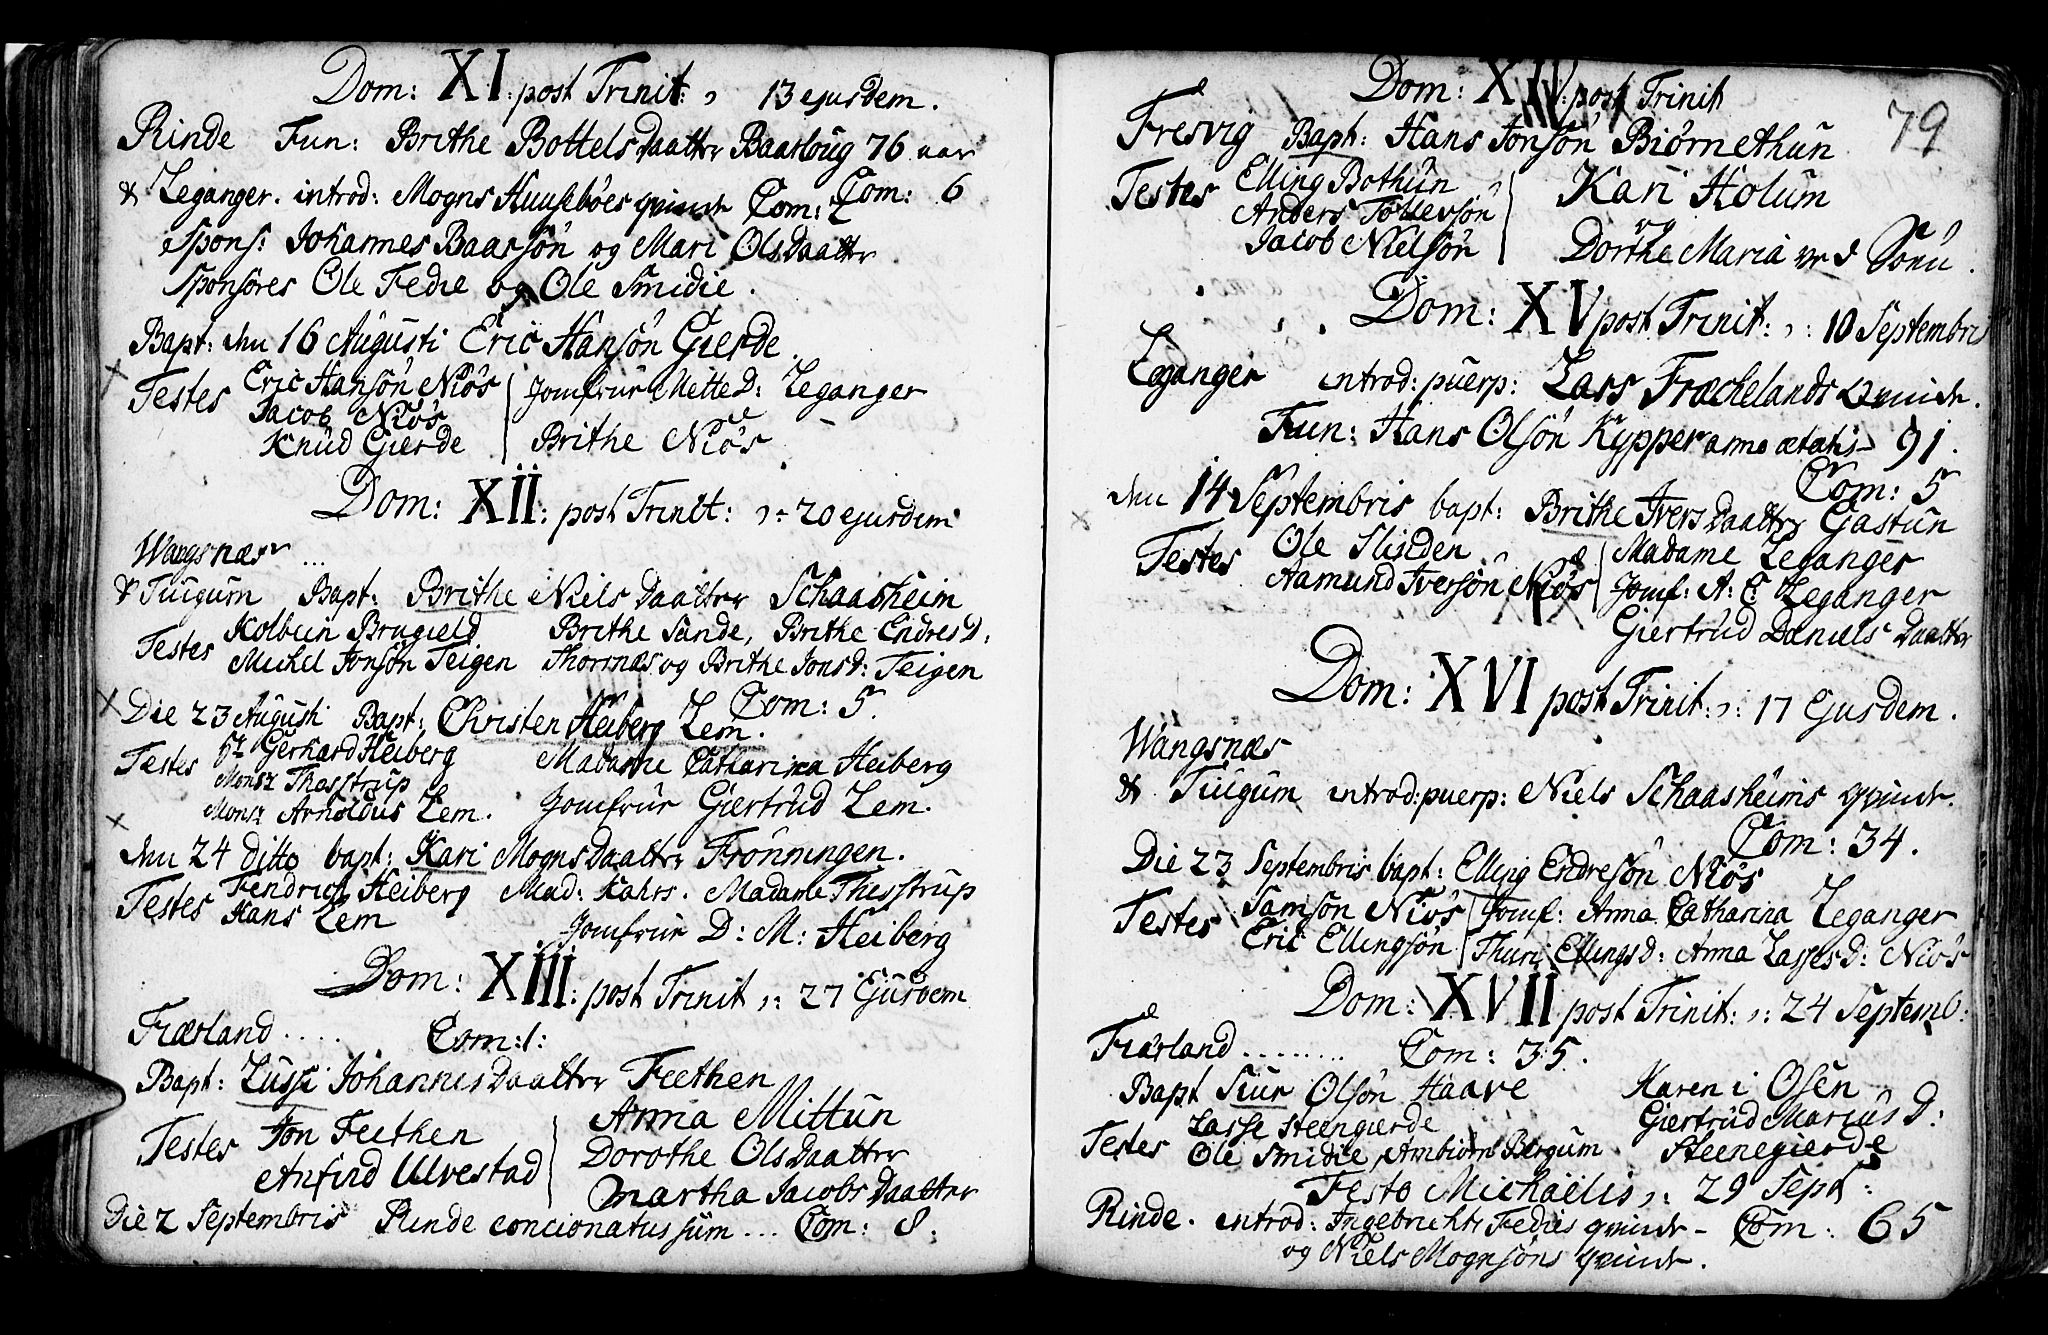 Dom: XI: post Trinit: 13 ejusdem.
Rinde Fun: Brithe Bottels Daatter Baarloug 76 aar
& Leganger. introd: Mogns Huusebøes qvinde Com: 2 Com: 6
Spons: Johannes Baarsøn og Mari Olsdaatter
Sponsores Ole Fedie og Ole Smidie.
Bapt: den 16 Augusti Eric Hansøn Gierde.
Testes Eric Hansøn Niøs Jomfrue Mette D: Leganger
Jacob Niøs
Knud Gierde Brithe Niøs
Dom: XII: post Trinit: 20 ejusdem
Wangsnæs ...
& Tiugum Bapt: Brithe Niels Daatter Schaasheim
Testes Kolbein Brugield Brithe Sande, Brithe Endres D:
Michel Jonsøn Teigen Thorsnæs og Brithe Jonsd: Teigen
Com: 5.
Die 23 Augusti Bapt: Christen Heiberg Lem.
Testes Hr Gerhard Heiberg Madame Catharina Heiberg
Monsr Thesstrup
Monsr Arnoldus Lem. Jomfrue Giertrud Lem.
den 24 ditto bapt: Kari Mogns Daatter Frønningen.
Testes Fendrich Heiberg Mad: Kahrs. Madame Thesstrup
Hans Lem Jomfrue D: M: Heiberg
Dom: XIII: post Trinit 27 Ejusdem
Fiærland ..... Com: 1:
Bapt: Lussi Johannis Daatter Feethen
Testes Jon Feethen Anna Mittun
Anfind Ulvestad Dorothe Ols Daatter
Martha Jacobs Daatter
Die 2 Septembris Rinde concionatus sum ... Com: 8:
Dom: XIV: post Trinit
79
Fresvig Bapt: Hans Jonsøn Biørnethun
Testes Elling Bothun Kari Holum
Anders Tollevsøn og
Jacob Nielsøn Dorthe Maria
Dom: XV post Trinit: 10 Septembris
Leganger introd: puerp: Lars Fræchelands Qvinde.
Fun: Hans Olsøn Kypper anno ætatis 91.
Com: 5
den 14 Septembris bapt: Brithe Ivers Daatter Gastun
Testes Ole Slinden Madame Leganger
Aamund Iversøn Niøs Jomf: A: C: Leganger
Giertrud Daniels Daatter
Dom: XVI post Trinit: 17 Ejusdem.
Wangsnæs
& Tiugum introd: puerp: Niels Schaasheims qvinde.
Com: 34.
Die 23 Septembris bapt: Elling Endresøn Niøs
Testes Samson Niøs Jomf: Anna Catharina Leganger
Eric Ellingsøn Thuri Ellings D: Anna Lasses D: Niøs
Dom: XVII post Trinit: 24 Septemb:
Fiærland ........ Com: 35.
Bapt Siur Olsøn Haave Karen i Osen
Testes Lasse Steengierde Giertrud Marius D:
Ole Smidie, Ambiørn Bergum Steenegierde
Festo Michaelis, 29 Sept:
Rinde. introd: Ingebricht Fedies qvinde - Com: 65
og Niels Mognsøns qvinde.